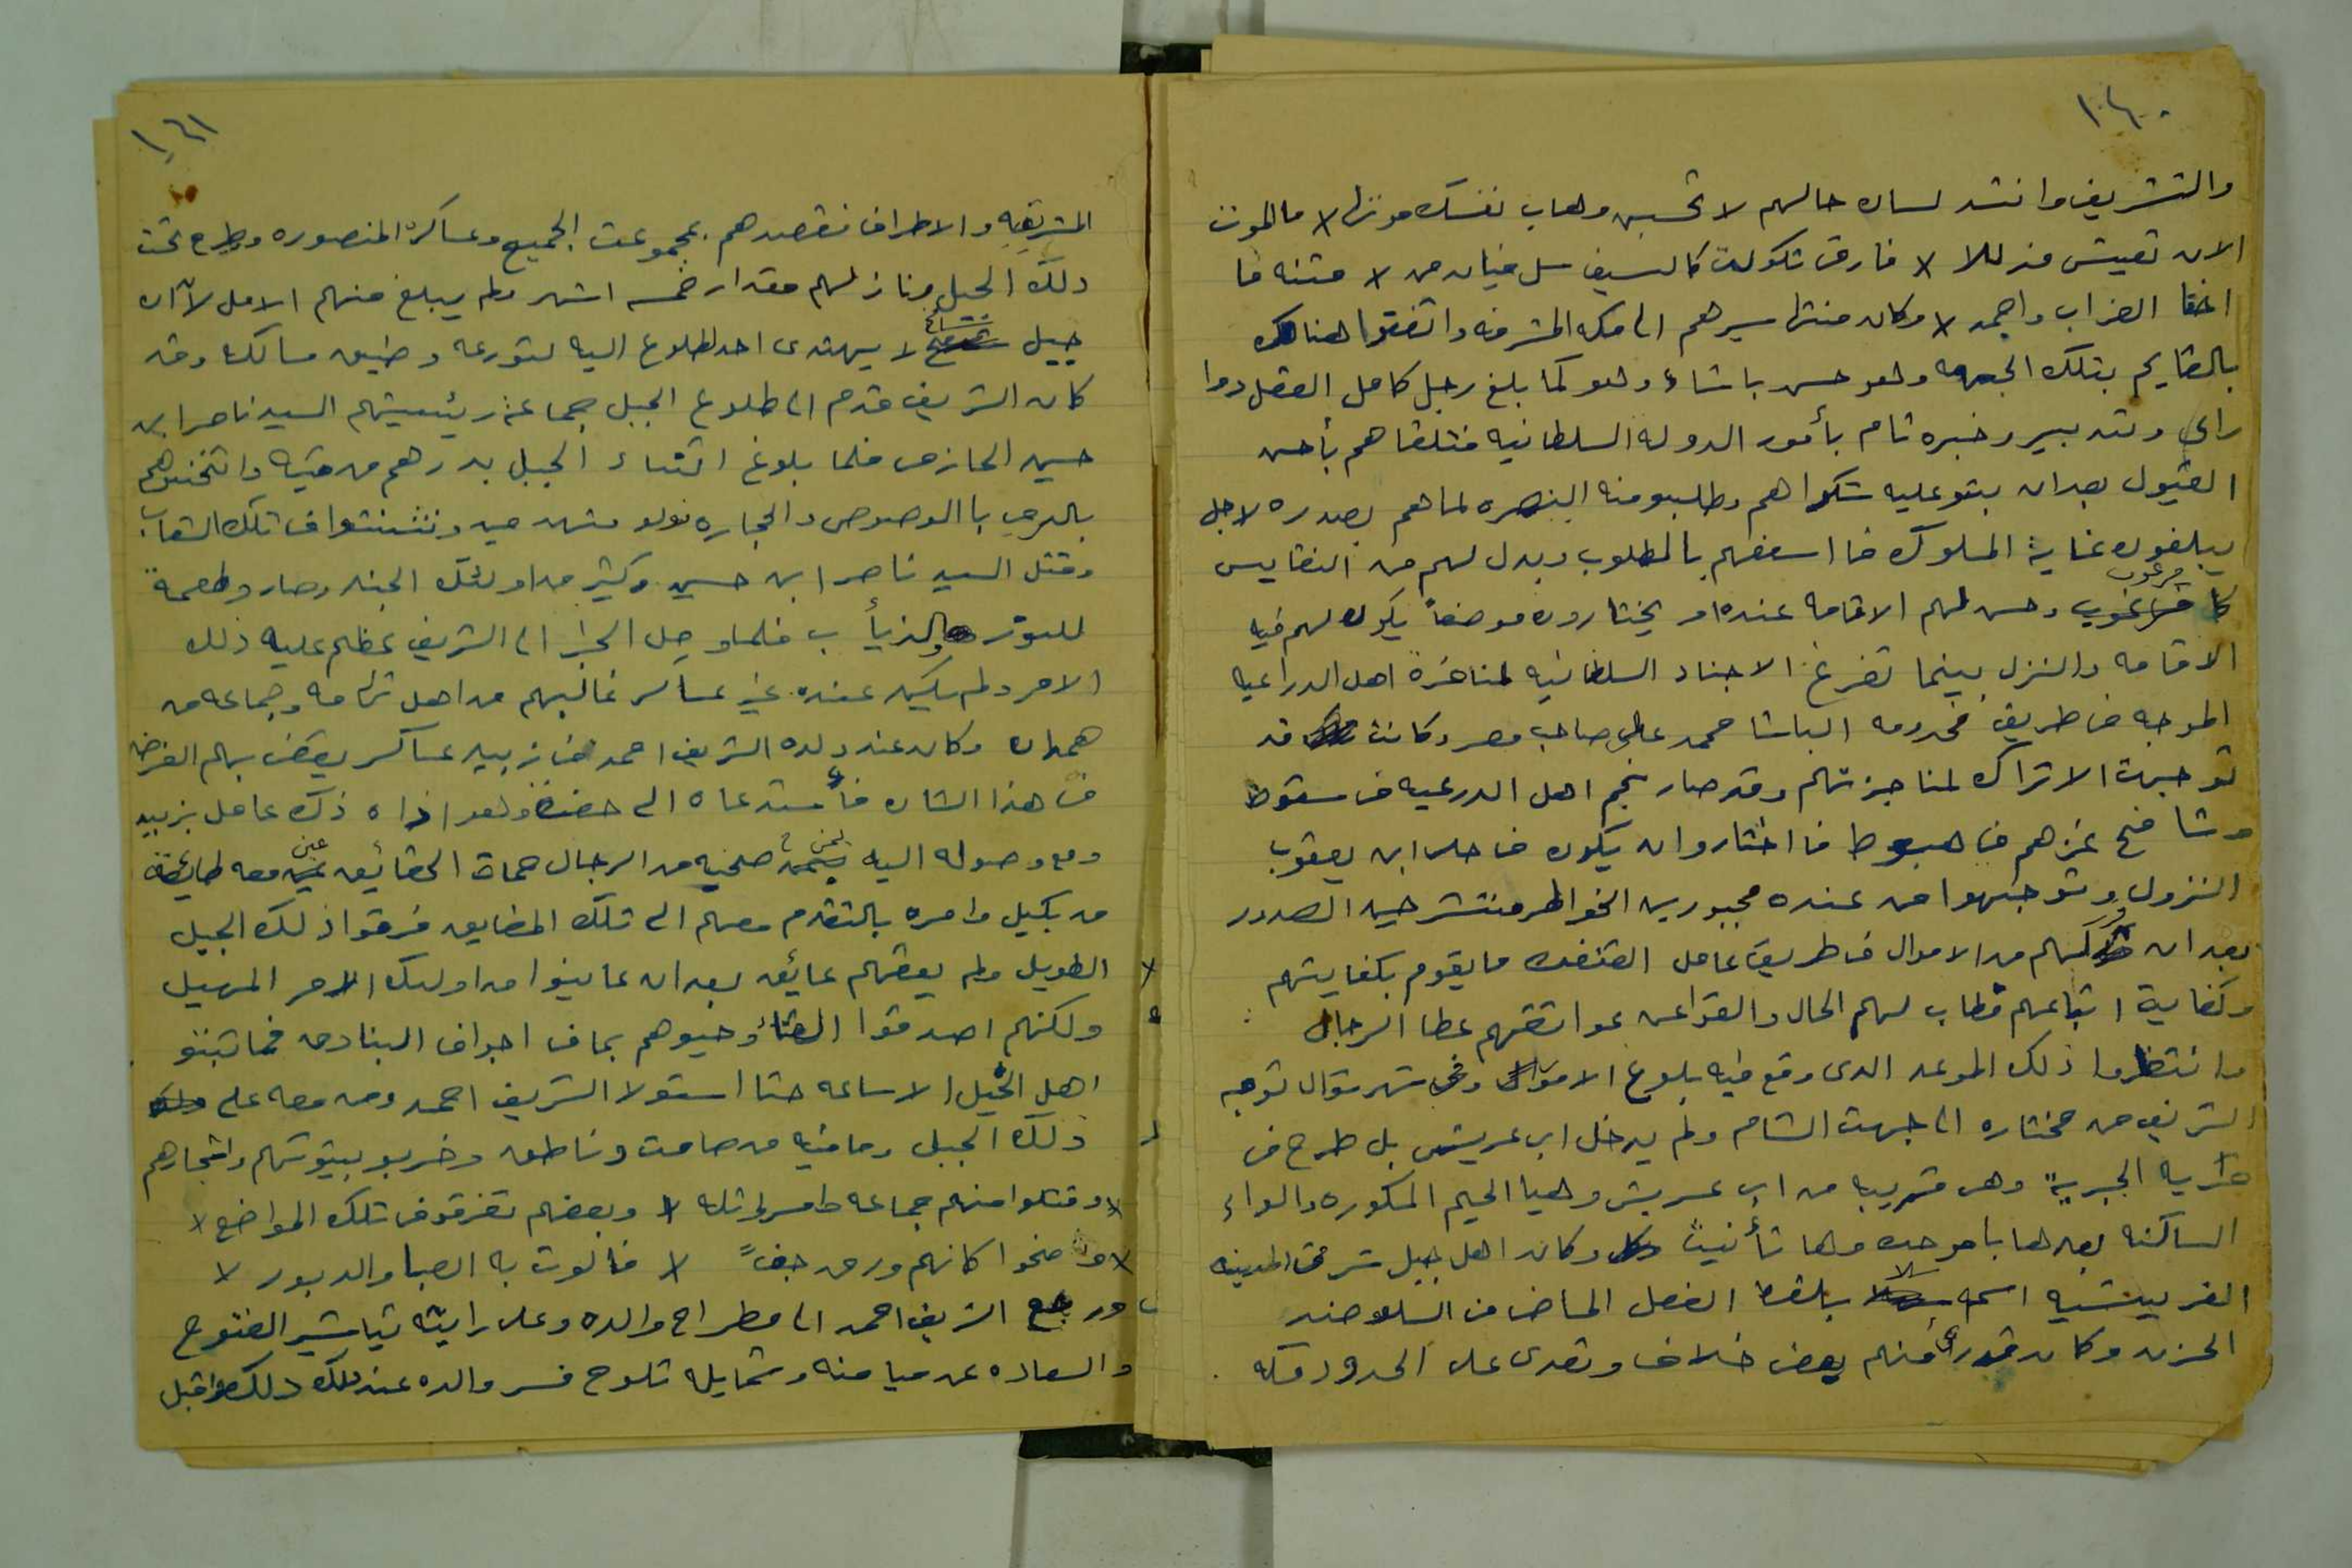 ١٠٤٠
والتشريف وانشد لسان حالهم لا تحسبن وهاب نفسك موتها لا ما الموت
الا ان تعيش مذللا لا فارق تكون كالسيف سل فبان من لا متنه ما
اخفا القراب واحمد لا وكان منتها سيرهم الى مكه المشرفه واتفقوا هناك
بالقايم بتلك الجهه وهو حسن باشاء وهو كما بلغ رجل كامل العقل ذوا
راى وتدبير وخبره تام بأمور الدوله السلطانيه فتلقاهم بأحسن
القبول بعد ان بثو عليه شكواهم وطلبو منه النصره لما هم بصدره لاجل
يبلغون غاية الملوك فا اسعفهم بالمطلوب وبدل لهم من النفايس
كل مرغوب وحسن لهم الاقامه عنده او يختارون موضعاً يكون لهم فيه
الاقامه والنزل بينما تفرغ الاجناد السلطانيه لمناجزة اهل الدراعيه
الموجه من طريق مخدومه الباشا محمد على صاحب مصر وكانت قد
توجهت الاتراك لمناجزتهم وقد صار نجم اهل الدرعيه فى سقوط
وشامخ عزهم فى هبوط فا اختاروا ان يكون فى حلى ابن يعقوب
النزول وتوجهوا من عنده مجبورين الخواطر منتشرحين الصدور
بعد ان لهم من الاموال فى طريق عامل القنفذه ما يقوم بكفايتهم
وكفاية اتباعهم فطاب لهم الحال والقوا عن عواتقهم عطا الرجال
وانتظروا ذلك الموعد الدى وقع فيه بلوغ الاموال وفى شهر شوال توجه
الشريف من مختاره الى جهت الشام ولم يدخل ابى عريش بل طرح فى
قريه الجربة وهى قريبه من ابى عريش وهيا الجيم المكوره والراء
الساكنه بعدها با موحده وها تأنيث وكان اهل جبل شرقى المدينه
العريشيه اسمه سلا بلفظ الفعل الماضى من السلو ضد
الحزن وكان قد رأى منهم بعض خلاف وتعدى على الحدود فكه
١٠٤١
المشرقيه والاطراف فقصدهم بمجموعت الجميع وعساكره المنصوره وطرح تحت
دلك الجبل ونازلهم مقدار خمسه اشهر ولم يبلغ منهم الامل لآن
جبل لا يهتدى احد لطلوع اليه لتورعه وضيق مسالكه وقد
كان الشريف قدم الى طلوع الجبل جماعة رئيسيتهم السيد ناصر ابن
حسين الحازمى فلما بلوغ اثناء الجبل بدرهم من فيه واتخنوهم
بالرمى با الرصوص والحجاره فولو منهدمين وتشتتوا فى تلك الشعاب
وقتل السيد ناصر ابن حسين وكثير من اولئك الجند وصارو طعمة
للنوسر والذيأب فلما وصل الخبر الى الشريف عظم عليه ذلك
الامر ولم يكن عنده غير عساكر غالبهم من اهل تهامه وجماعه من
همدان وكان عند ولده الشريف احمد فى زبيد عساكر يقضى بهم الغرض
فى هذا الشان فأستدعاه الى حضرة وهو اذاه ذاك عامل بزبيد
ومع وصوله اليه بمن صحبه من الرجال حمات الحقائق عين معه طائفة
من بكيل وامره بالتقدم معهم الى تلك المضايق فرقوا ذلك الجبل
الطويل ولم يعقهم عائق بعد ان عاينوا من اولئك الامر المهيل
ولكنهم اصدقوا اللقاء وحيوهم بما فى اجواف البنادق فما تبتو
اهل الجبل الا ساعه حتا استولا الشريف احمد ومن معه على
ذلك الجبل وما فيه من صامت وناطق وخربو بيتوتهم واشجارهم
لا وقتلوا منهم جماعه طامر لها ثله لا وبعضهم تفرقو فى تلك المواضع لا
لا واضحوا كانهم ورق جفً لا فالوت به الصبا والدبور لا
ورجع الشريف احمد الى مطراح والده وعلى رايته تياشير الفتوح
والسعاده عن ميامنه وشمايله تلوح فسر والده عند ذلك واقبل